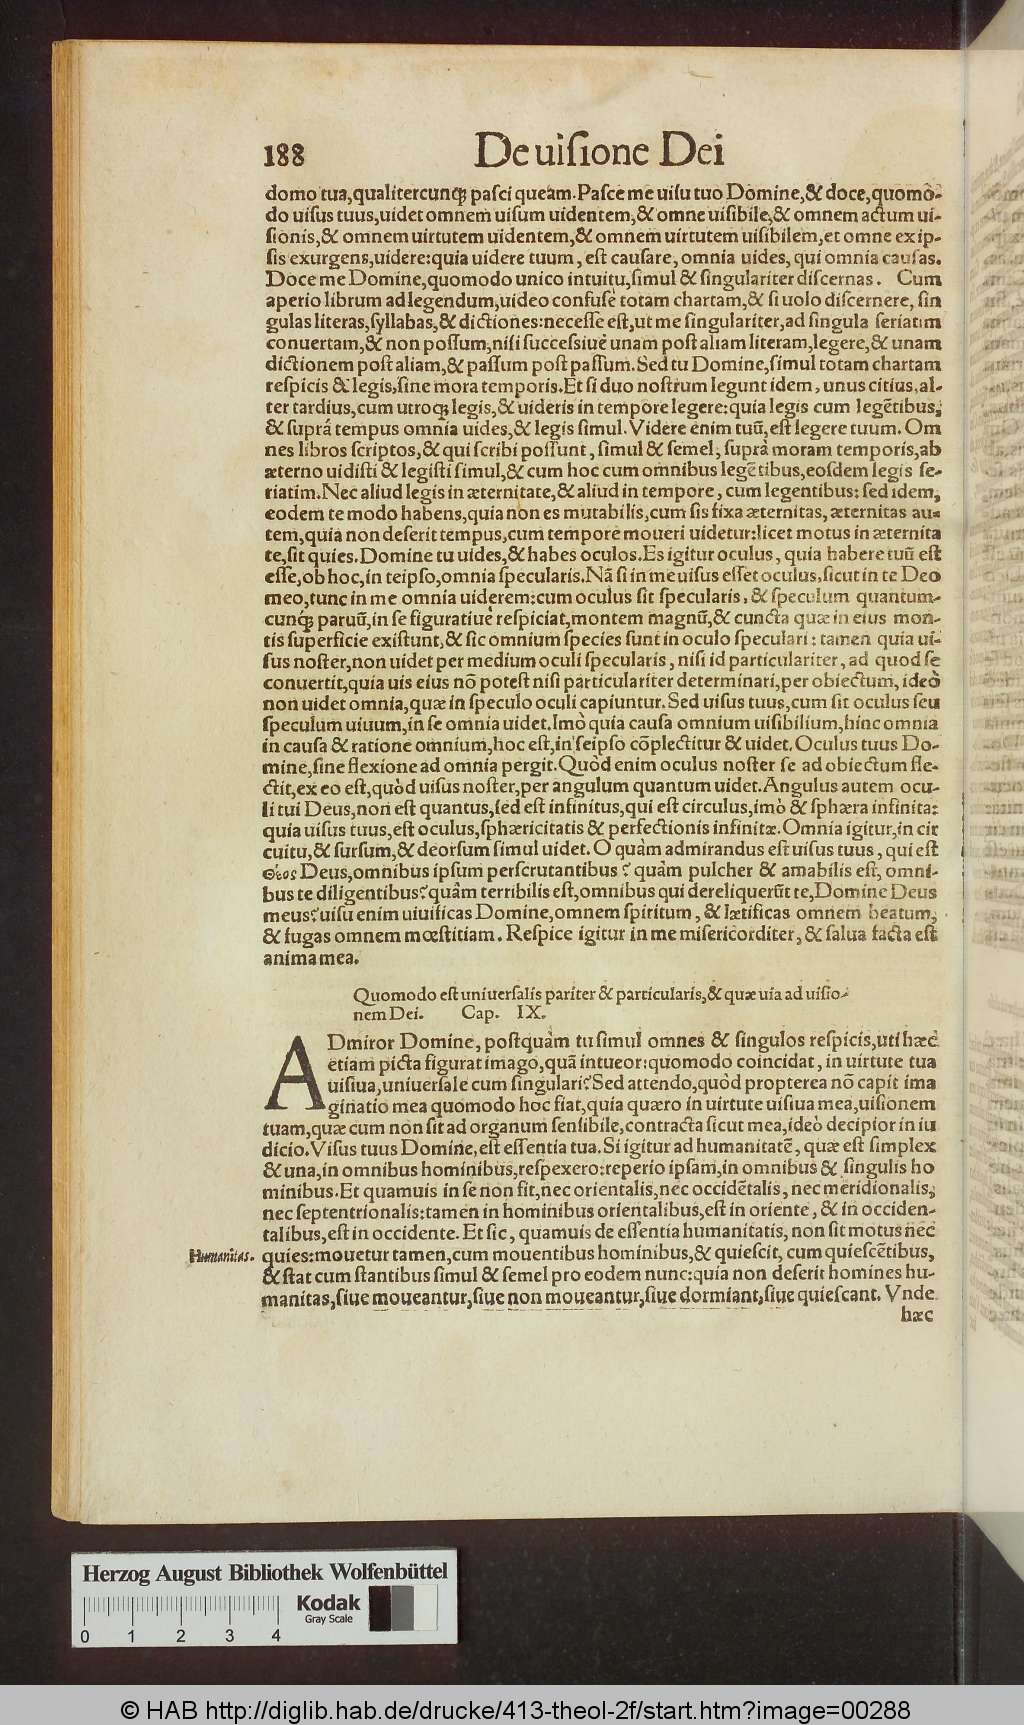 188 De uisione Dei
domo tua, qualitercunq; pasci queam. Pasce me uisu tuo Domine, & doce, quomo-
do uisus tuus, uidet omnem uisum uidentem, & omne uisibile, & omnem actum ui-
sionis, & omnem uirtutem uidentem, & omnem uirtutem uisibilem, et omne ex ip-
sis exurgens, uidere: quia uidere tuum, est causare, omnia uides, qui omnia causas.
Doce me Domine, quomodo unico intuitu, simul & singulariter discernas. Cum
aperio librum ad legendum, uideo confusè totam chartam, & si uolo discernere, sin
gulas literas, syllabas, & dictiones: necesse est, ut me singulariter, ad singula seriatim
conuertam, & non possum, nisi successiuè unam post aliam literam, legere, & unam
dictionem post aliam, & passum post passum. Sed tu Domine, simul totam chartam
respicis & legis, sine mora temporis. Et si duo nostrum legunt idem, unus citius, al-
ter tardius, cum utroq; legis, & uideris in tempore legere: quia legis cum legẽtibus,
& suprá tempus omnia uides, & legis simul. Videre enim tuũ, est legere tuum. Om
nes libros scriptos, & qui scribi possunt, simul & semel, suprà moram temporis, ab
æterno uidisti & legisti simul, & cum hoc cum omnibus legẽtibus, eosdem legis se-
riatim. Nec aliud legis in æternitate, & aliud in tempore, cum legentibus: sed idem,
eodem te modo habens, quia non es mutabilis, cum sis fixa æternitas, æternitas au-
tem, quia non deserit tempus, cum tempore moueri uidetur: licet motus in æternita
te, sit quies. Domine tu uides, & habes oculos. Es igitur oculus, quia habere tuũ est
esse, ob hoc, in teipso, omnia specularis. Nã si in me uisus esset oculus, sicut in te Deo
meo, tunc in me omnia uiderem: cum oculus sit specularis, & speculum quantum-
cunq; paruũ, in se figuratiuè respiciat, montem magnũ, & cuncta quæ in eius mon-
tis superficie existunt, & sic omnium species sunt in oculo speculari: tamen quia ui-
sus noster, non uidet per medium oculi specularis, nisi id particulariter, ad quod se
conuertit, quia uis eius nõ potest nisi particulariter determinari, per obiectum, ideò
non uidet omnia, quæ in speculo oculi capiuntur. Sed uisus tuus, cum sit oculus seu
speculum uiuum, in se omnia uidet. Imò quia causa omnium uisibilium, hinc omnia
in causa & ratione omnium, hoc est, in seipso cõplectitur & uidet. Oculus tuus Do-
mine, sine flexione ad omnia pergit. Quòd enim oculus noster se ad obiectum fle-
ctit, ex eo est, quòd uisus noster, per angulum quantum uidet. Angulus autem ocu-
li tui Deus, non est quantus, sed est infinitus, qui est circulus, imò & sphæra infinita:
quia uisus tuus, est oculus, sphæricitatis & perfectionis infinitæ. Omnia igitur, in cir
cuitu, & sursum, & deorsum simul uidet. O quàm admirandus est uisus tuus, qui est
θεος Deus, omnibus ipsum perscrutantibus? quàm pulcher & amabilis est, omni-
bus te diligentibus? quàm terribilis est, omnibus qui dereliquerũt te, Domine Deus
meus? uisu enim uiuificas Domine, omnem spiritum, & lætificas omnem beatum,
& fugas omnem mœstitiam. Respice igitur in me misericorditer, & salua facta est
anima mea.
Quomodo est uniuersalis pariter & particularis, & quæ uia ad uisio-
nem Dei. Cap. IX.
ADmiror Domine, postquàm tu simul omnes & singulos respicis, uti hæc
etiam picta figurat imago, quã intueor: quomodo coincidat, in uirtute tua
uisiua, uniuersale cum singulari? Sed attendo, quòd propterea nõ capit ima
ginatio mea quomodo hoc fiat, quia quæro in uirtute uisiua mea, uisionem
tuam, quæ cum non sit ad organum sensibile, contracta sicut mea, ideò decipior in iu
dicio. Visus tuus Domine, est essentia tua. Si igitur ad humanitatẽ, quæ est simplex
& una, in omnibus hominibus, respexero: reperio ipsam, in omnibus & singulis ho
minibus. Et quamuis in se non sit, nec orientalis, nec occidẽtalis, nec meridionalis,
nec septentrionalis: tamen in hominibus orientalibus, est in oriente, & in occiden-
talibus, est in occidente. Et sic, quamuis de essentia humanitatis, non sit motus nec
Humanitas. quies: mouetur tamen, cum mouentibus hominibus, & quiescit, cum quiescẽtibus,
& stat cum stantibus simul & semel pro eodem nunc: quia non deserit homines hu-
manitas, siue moueantur, siue non moueantur, siue dormiant, siue quiescant. Vnde
hæc
Herzog August Bibliothek Wolfenbüttel
Kodak
Gray Scale
0 1 2 3 4
© HAB http://diglib.hab.de/drucke/413-theol-2f/start.htm?image=00288